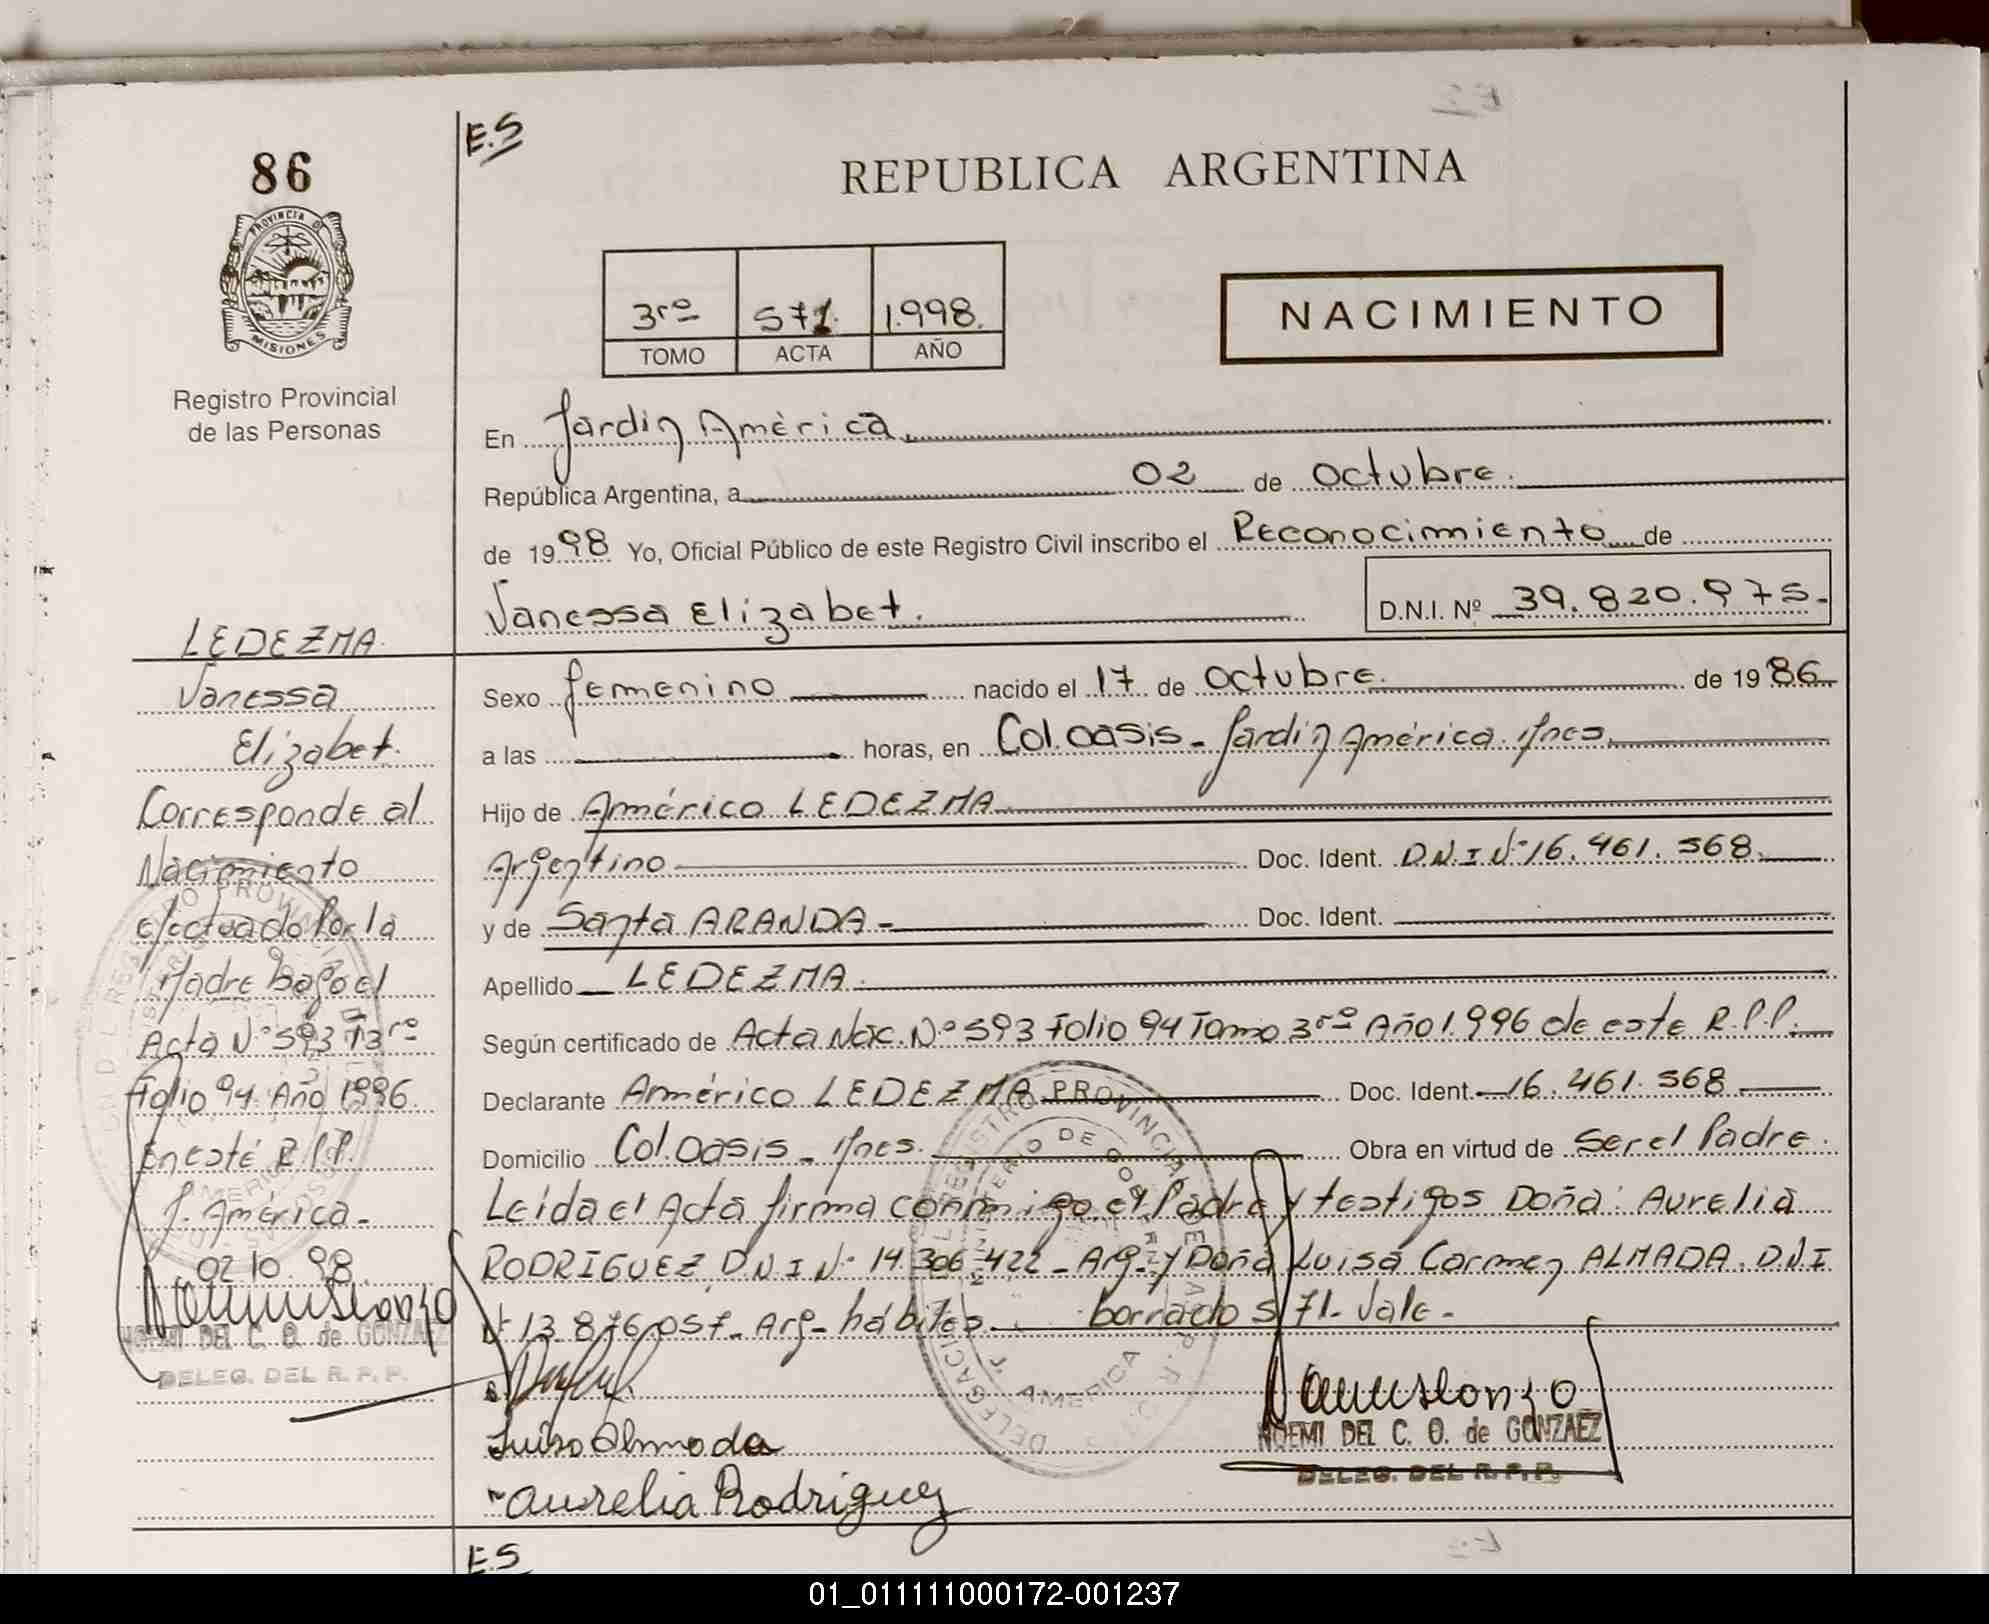 E.S
86
REPUBLICA ARGENTINA
PROVINCIA DE
MISIONES
3ro 571. 1.998.
TOMO ACTA AÑO
NACIMIENTO
Registro Provincial
de las Personas
En Jardin América
República Argentina, a 02 de octubre.
de 1998 Yo, Oficial Público de este Registro Civil inscribo el Reconocimiento de
Vanessa Elizabet. D.N.I. Nº 39.820.975.
Sexo femenino nacido el 17 de octubre. de 1986
a las horas, en Col. oasis - Jardin América. Mnes.
Hijo de Américo LEDEZMA
Argentino Doc. Ident. D.N.I Nº 16.461.568
y de Santa ARANDA - Doc. Ident.
Apellido LEDEZMA.
Según certificado de Acta Nac. Nº 593 Folio 94 Tomo 3ro Año 1.996 de este R.P.P.
Declarante Américo LEDEZMA Doc. Ident. 16.461.568
Domicilio Col. Oasis - Mnes. Obra en virtud de Ser el Padre.
Leída el Acta firma conmigo el Padre y testigos Doña: Aurelia
RODRIGUEZ D.N.I Nº 14.306.422 - Arg. y Doña Luisa Carmen ALMADA. D.N.I
Nº 13.876.057 - Arg - hábiles. borrado 571 - Vale -
Luisa Almada
Aurelia Rodriguez
NOEMI DEL C. O. de GONZAEZ
DELEG. DEL R. P. P.
LEDEZMA.
Vanessa
Elizabet.
Corresponde al
Nacimiento
efectuado Por la
Madre bajo el
Acta Nº 593 T 3ro
Folio 94. Año 1996.
En este R.P.P.
J. América -
02 10. 98.
NOEMI DEL C. O. de GONZAEZ
DELEG. DEL R. P. P.
E.S
01_011111000172-001237